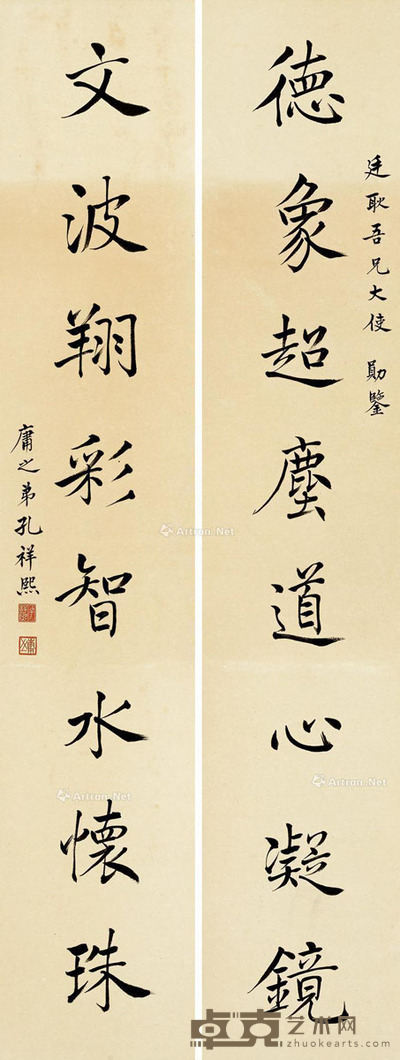 德象超塵道心凝鏡
廷耿吾兄大使 勛鑒
文波翔彩智水懷珠
庸之弟孔祥熙
Artron.Net
Artron.Net
Artron.Net
Artron.Net
卓克艺术网
zhuokearts.com